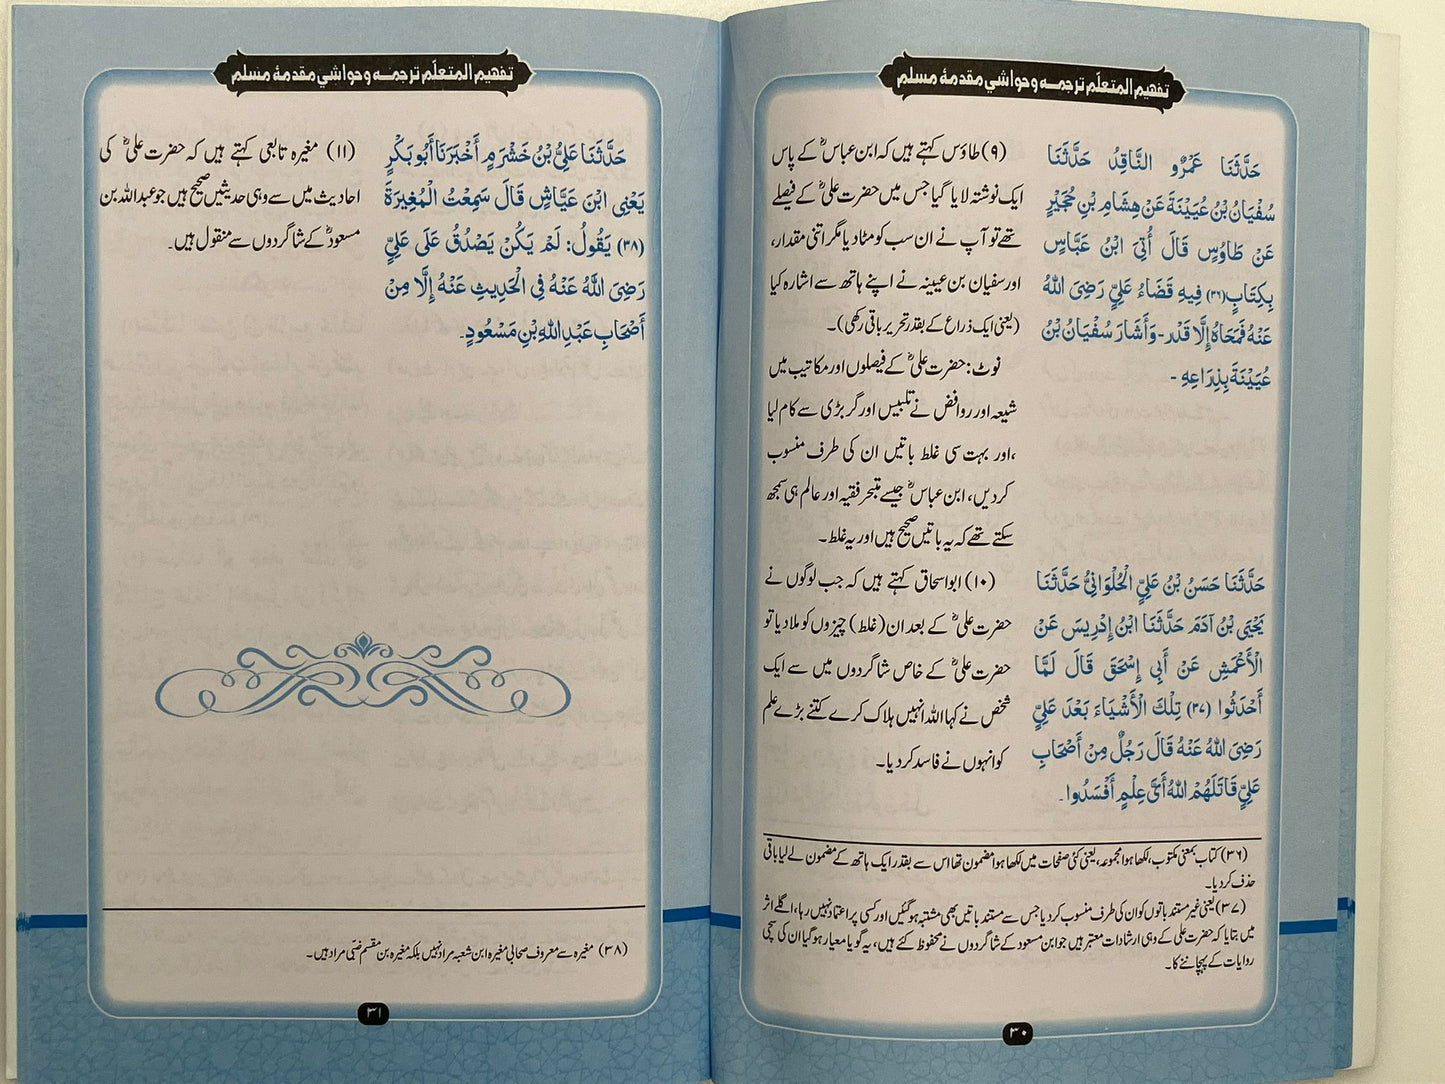 تفهيم المتعلّم ترجمـــه و حواشي مقدمهٔ مسلم
حَدَّثَنَا عَمْرٌو النَّاقِدُ حَدَّثَنَا
سُفْيَانُ بْنُ عُيَيْنَةَ عَنْ هِشَامِ بْنِ حُجَيْرٍ
عَنْ طَاوُسٍ قَالَ أُتِيَ ابْنُ عَبَّاسٍ
بِكِتَابٍ (۳۶) فِيهِ قَضَاءُ عَلِيٍّ رَضِىَ اللهُ
عَنْهُ فَمَحَاهُ إِلَّا قَدْرَ- وَأَشَارَ سُفْيَانُ بْنُ
عُيَيْنَةَ بِذِرَاعِهِ -
(۹) طاؤس کہتے ہیں کہ ابن عباسؓ کے پاس
ایک نوشتہ لایا گیا جس میں حضرت علیؓ کے فیصلے
تھے تو آپ نے ان سب کو مٹا دیا مگر اتنی مقدار،
اور سفیان بن عیینہ نے اپنے ہاتھ سے اشارہ کیا
(یعنی ایک ذراع کے بقدر تحریر باقی رکھی)۔
نوٹ: حضرت علیؓ کے فیصلوں اور مکاتیب میں
شیعہ اور روافض نے تلبیس اور گڑبڑی سے کام لیا
،اور بہت سی غلط باتیں ان کی طرف منسوب
کر دیں، ابن عباسؓ جیسے متبحر فقیہ اور عالم ہی سمجھ
سکتے تھے کہ یہ باتیں صحیح ہیں اور یہ غلط۔
حَدَّثَنَا حَسَنُ بْنُ عَلِيٍّ الْحُلْوَانِيُّ حَدَّثَنَا
يَحْيَى بْنُ آدَمَ حَدَّثَنَا ابْنُ إِدْرِيسَ عَنْ
الْأَعْمَشِ عَنْ أَبِي إِسْحَقَ قَالَ لَمَّا
أَحْدَثُوا (۳۷) تِلْكَ الْأَشْيَاءَ بَعْدَ عَلِيٍّ
رَضِىَ اللهُ عَنْهُ قَالَ رَجُلٌ مِنْ أَصْحَابِ
عَلِيٍّ قَاتَلَهُمْ اللهُ أَىَّ عِلْمٍ أَفْسَدُوا۔
(۱۰) ابواسحاق کہتے ہیں کہ جب لوگوں نے
حضرت علیؓ کے بعد ان (غلط) چیزوں کو ملا دیا تو
حضرت علیؓ کے خاص شاگردوں میں سے ایک
شخص نے کہا اللہ انہیں ہلاک کرے کتنے بڑے علم
کو انہوں نے فاسد کر دیا۔
(۳۶) کتاب بمعنی مکتوب، لکھا ہوا مجموعہ، یعنی کئی صفحات میں لکھا ہوا مضمون تھا اس سے بقدر ایک ہاتھ کے مضمون لے لیا باقی
حذف کر دیا۔
(۳۷) یعنی غیر مستند باتوں کو ان کی طرف منسوب کر دیا جس سے مستند باتیں بھی مشتبہ ہو گئیں اور کسی پر اعتماد نہیں رہا، اگلے اثر
میں بتایا کہ حضرت علی کے وہی ارشادات معتبر ہیں جو ابن مسعود کے شاگردوں نے محفوظ کئے ہیں، یہ گویا معیار ہو گیا ان کی سچی
روایات کے پہچاننے کا۔
۳۰
تفهيم المتعلّم ترجمـــه و حواشي مقدمهٔ مسلم
حَدَّثَنَا عَلِيُّ بْنُ خَشْرَمٍ أَخْبَرَنَا أَبُو بَكْرٍ
يَعْنِى ابْنَ عَيَّاشٍ قَالَ سَمِعْتُ الْمُغِيرَةَ
(۳۸) يَقُولُ: لَمْ يَكُنْ يَصْدُقُ عَلَى عَلِيٍّ
رَضِىَ اللهُ عَنْهُ فِي الْحَدِيثِ عَنْهُ إِلَّا مِنْ
أَصْحَابِ عَبْدِ اللهِ بْنِ مَسْعُودٍ۔
(۱۱) مغیرہ تابعی کہتے ہیں کہ حضرت علیؓ کی
احادیث میں سے وہی حدیثیں صحیح ہیں جو عبداللہ بن
مسعودؓ کے شاگردوں سے منقول ہیں۔
(۳۸) مغیرہ سے معروف صحابی مغیرہ ابن شعبہ مراد نہیں بلکہ مغیرہ بن مقسم ضبّی مراد ہیں۔
۳۱